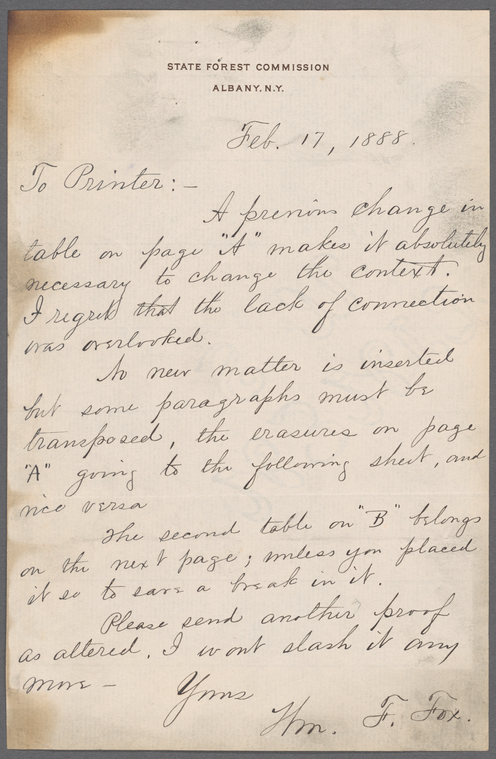 STATE FOREST COMMISSION
ALBANY, N.Y.
Feb. 17, 1888.
To Printer:—
A previous change in
table on page "A" makes it absolutely
necessary to change the context.
I regret that the lack of connection
was overlooked.
No new matter is inserted
but some paragraphs must be
transposed, the erasures on page
"A" going to the following sheet, and
vice versa
The second table on "B" belongs
on the next page; unless you placed
it so to save a break in it.
Please send another proof
as altered. I wont slash it any
more —
Yours
Wm. F. Fox.